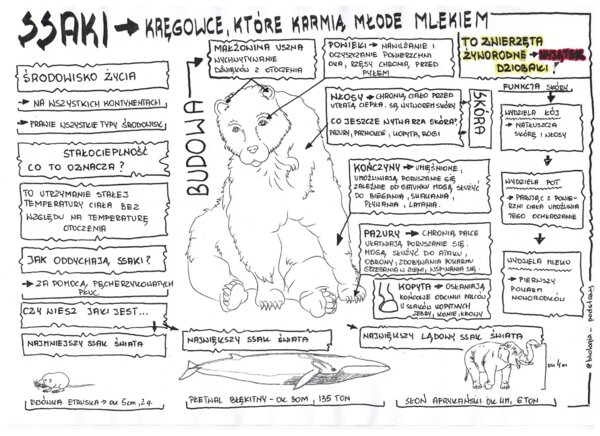 SSAKI → KRĘGOWCE, KTÓRE KARMIĄ MŁODE MLEKIEM
ŚRODOWISKO ŻYCIA
→ NA WSZYSTKICH KONTYNENTACH,
→ PRAWIE WSZYSTKIE TYPY ŚRODOWISK
STAŁOCIEPLNOŚĆ
CO TO OZNACZA?
TO UTRZYMANIE STAŁEJ
TEMPERATURY CIAŁA BEZ
WZGLĘDU NA TEMPERATURĘ
OTOCZENIA
JAK ODDYCHAJĄ SSAKI?
→ ZA POMOCĄ PĘCHERZYKOWATYCH
PŁUC.
CZY WIESZ JAKI JEST...
NAJMNIEJSZY SSAK ŚWIATA
RYJÓWKA ETRUSKA → OK 5cm, 2g.
BUDOWA
MAŁŻOWINA USZNA
WYCHWYTYWANIE
DŹWIĘKÓW Z OTOCZENIA
POWIEKI → NAWILŻANIE I
OCZYSZCZANIE POWIERZCHNI
OKA, RZĘSY CHRONIĄ PRZED
PYŁEM
WŁOSY → CHRONIĄ CIAŁO PRZED
UTRATĄ CIEPŁA. SĄ WYTWOREM SKÓRY
CO JESZCZE WYTWARZA SKÓRA?
PAZURY, PAZNOKCIE, KOPYTA, ROGI
SKÓRA
KOŃCZYNY → UMIĘŚNIONE,
UMOŻLIWIAJĄ PORUSZANIE SIĘ
ZALEŻNIE OD GATUNKU MOGĄ SŁUŻYĆ
DO BIEGANIA, SKAKANIA,
PŁYWANIA, LATANIA.
PAZURY → CHRONIĄ PALCE
UŁATWIAJĄ PORUSZANIE SIĘ.
MOGĄ SŁUŻYĆ DO ATAKU,
OBRONY, ZDOBYWANIA POKARMU
GRZEBANIA W ZIEMI, WSPINANIA SIĘ.
KOPYTA → OSŁANIAJĄ
KOŃCOWE ODCINKI PALCÓW
U SSAKÓW KOPYTNYCH
ŻEBRY, KONIE, KROWY
TO ZWIERZĘTA
ŻYWORODNE → WYJĄTEK
DZIOBAKI!
FUNKCJA SKÓRY
WYDZIELA ŁÓJ
→ NATŁUSZCZA
SKÓRĘ I WŁOSY
WYDZIELA POT
→ PARUJĄC Z POWIE-
RZCHNI CIAŁA UMOŻLIWIA
JEGO OCHŁADZANIE
WYDZIELA MLEKO
→ PIERWSZY
POKARM
NOWORODKÓW
NAJWIĘKSZY SSAK ŚWIATA
PŁETWAL BŁĘKITNY - OK 30M, 135 TON
NAJWIĘKSZY LĄDOWY SSAK ŚWIATA
OK 4m
SŁOŃ AFRYKAŃSKI OK 4M, 6 TON